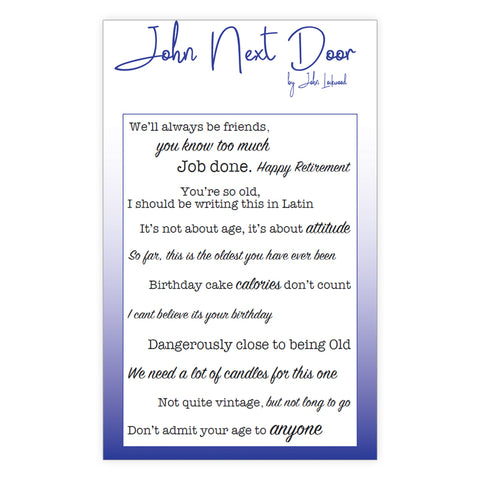 John Next Door
by John Lockwood
We'll always be friends,
you know too much
Job done. Happy Retirement
You're so old,
I should be writing this in Latin
It's not about age, it's about attitude
So far, this is the oldest you have ever been
Birthday cake calories don't count
I cant believe its your birthday
Dangerously close to being Old
We need a lot of candles for this one
Not quite vintage, but not long to go
Don't admit your age to anyone